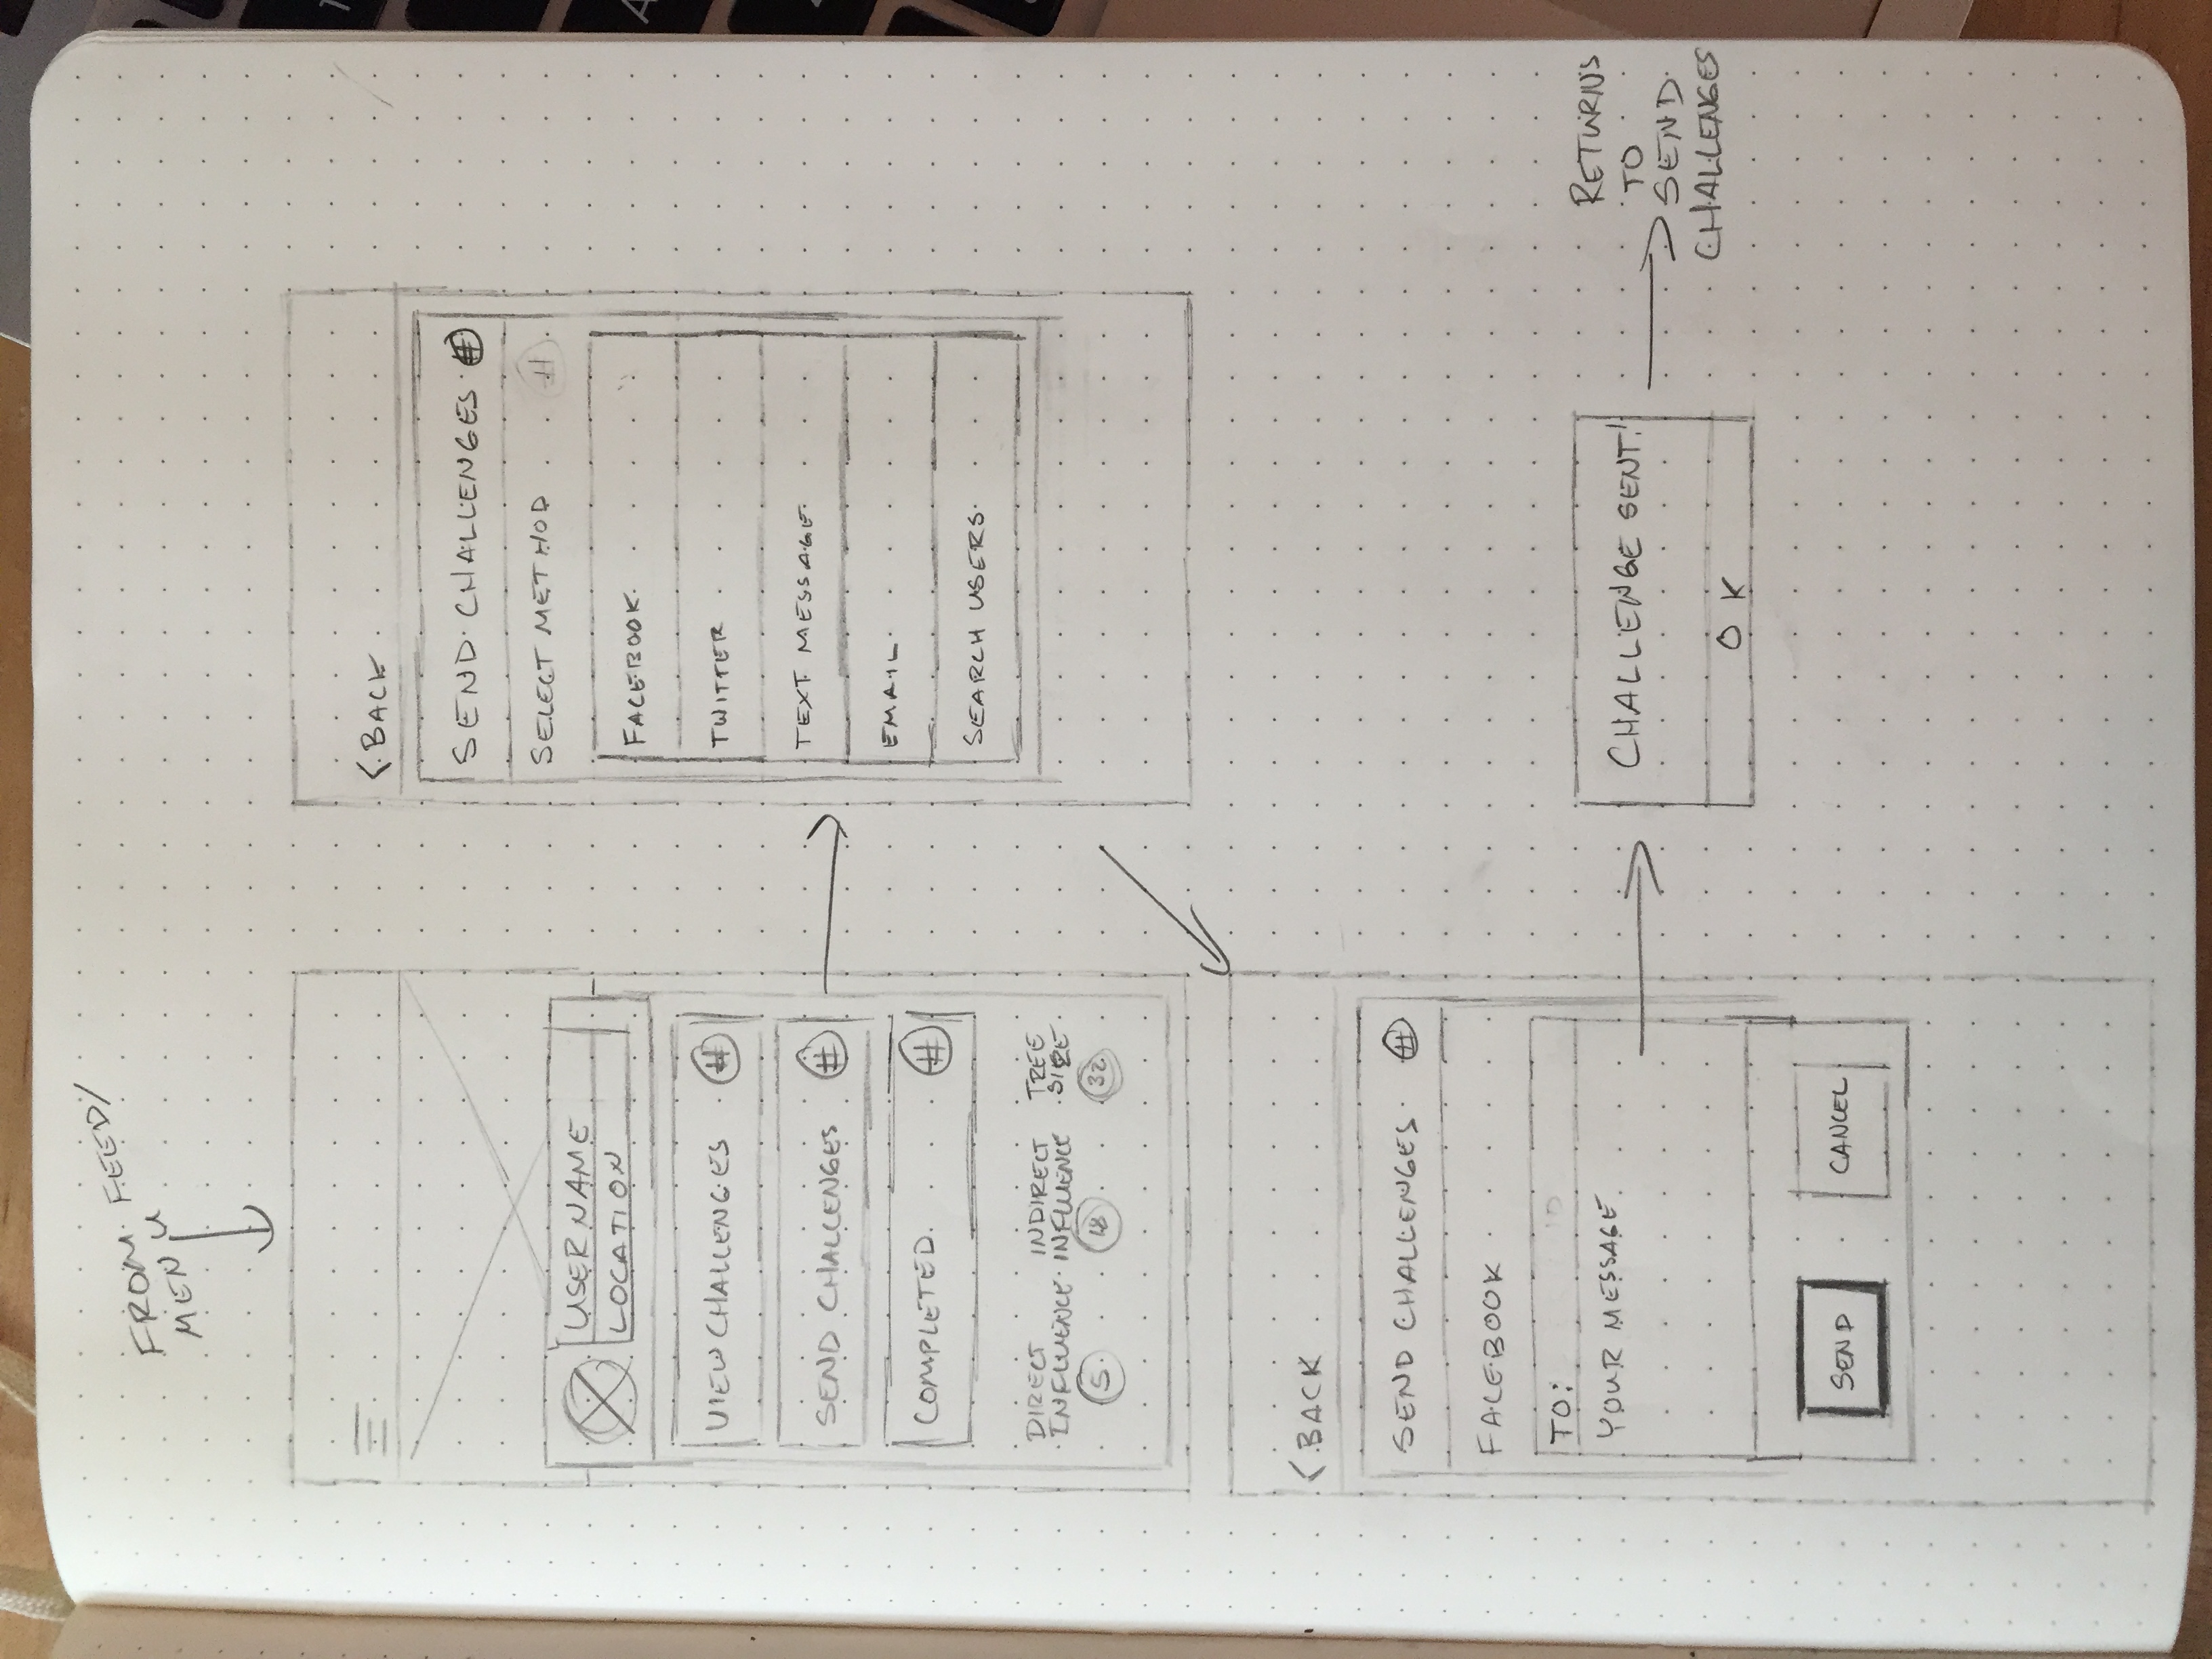 FROM FEED/
MENU
USERNAME
LOCATION
VIEW CHALLENGES #
SEND CHALLENGES #
COMPLETED #
DIRECT INFLUENCE
INDIRECT INFLUENCE
TREE SIZE
5
18
32
< BACK
SEND CHALLENGES #
SELECT METHOD #
FACEBOOK
TWITTER
TEXT MESSAGE
EMAIL
SEARCH USERS
< BACK
SEND CHALLENGES #
FACEBOOK
TO:
YOUR MESSAGE
SEND
CANCEL
CHALLENGE SENT!
OK
RETURNS
TO
SEND
CHALLENGES